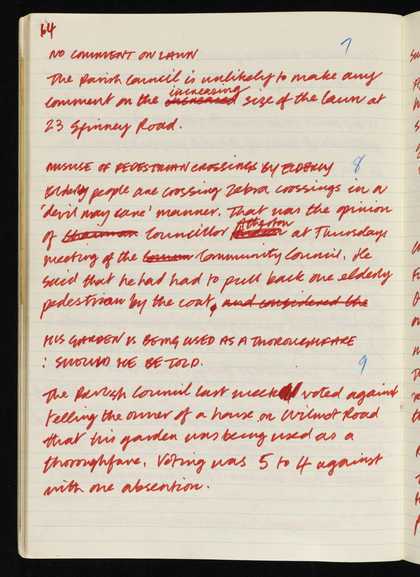 64
7
NO COMMENT ON LAWN
The Parish Council is unlikely to make any
increasing
comment on the increased size of the lawn at
23 Spinney Road.
MISUSE OF PEDESTRIAN CROSSINGS BY ELDERLY 8
Elderly people are crossing Zebra crossings in a
'devil may care' manner. That was the opinion
Atherton
of Chairman Councillor at Thursdays
meeting of the Community Council. He
said that he had had to pull back one elderly
pedestrian by the coat, and considered the
HIS GARDEN IS BEING USED AS A THOROUGHFARE
: SHOULD HE BE TOLD. 9
The Parish Council last week voted against
telling the owner of a house on Wilmot Road
that his garden was being used as a
thoroughfare. Voting was 5 to 4 against
with one absention.